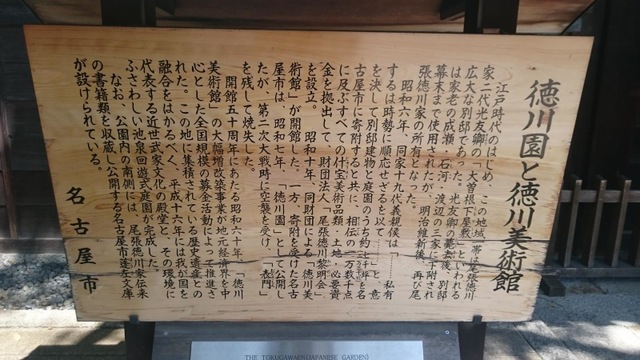 徳川園と徳川美術館
江戸時代のはじめ、この地域一帯は尾張徳川
家二代光友卿の「大曽根下屋敷」といわれる
広大な別邸であった。光友卿の薨去後、別邸
は家老の成瀬・石河・渡辺の三家に下附され
幕末まで使用されたが、明治維新後、再び尾
張徳川家の所有となった。
昭和六年、同家十九代義親侯は「……私有
するは時勢に順応せざるを以て……」と意
を決して別邸建物と庭園のうち約
古屋市に寄附すると共に、相伝の一万数千点
に及ぶすべての什宝美術品類・土地・必要資
金を拠出して、財団法人「尾張徳川黎明会」
を設立、昭和十年、同財団による「徳川美
術館」が開館した。一方、寄附を受けた名古
屋市は、昭和七年、「徳川園」として公開し
たが、第二次大戦時に空襲を受け、「表門」
を残して焼失した。
開館五十周年にあたる昭和六十年、「徳川
美術館」の大幅増改築事業が地元経済界を中
心とした全国規模の募金活動によって推進さ
れた。この地に集積されている歴史遺産との
融合をはかるべく、平成十六年には我が国を
代表する近世武家文化の殿堂と、その環境に
ふさわしい池泉回遊式庭園が完成した。
なお、公園内の南側には、尾張徳川家伝来
の書籍類を収蔵し公開する名古屋市蓬左文庫
が設けられている。
名古屋市
THE TOKUGAWAEN(JAPANESE GARDEN)